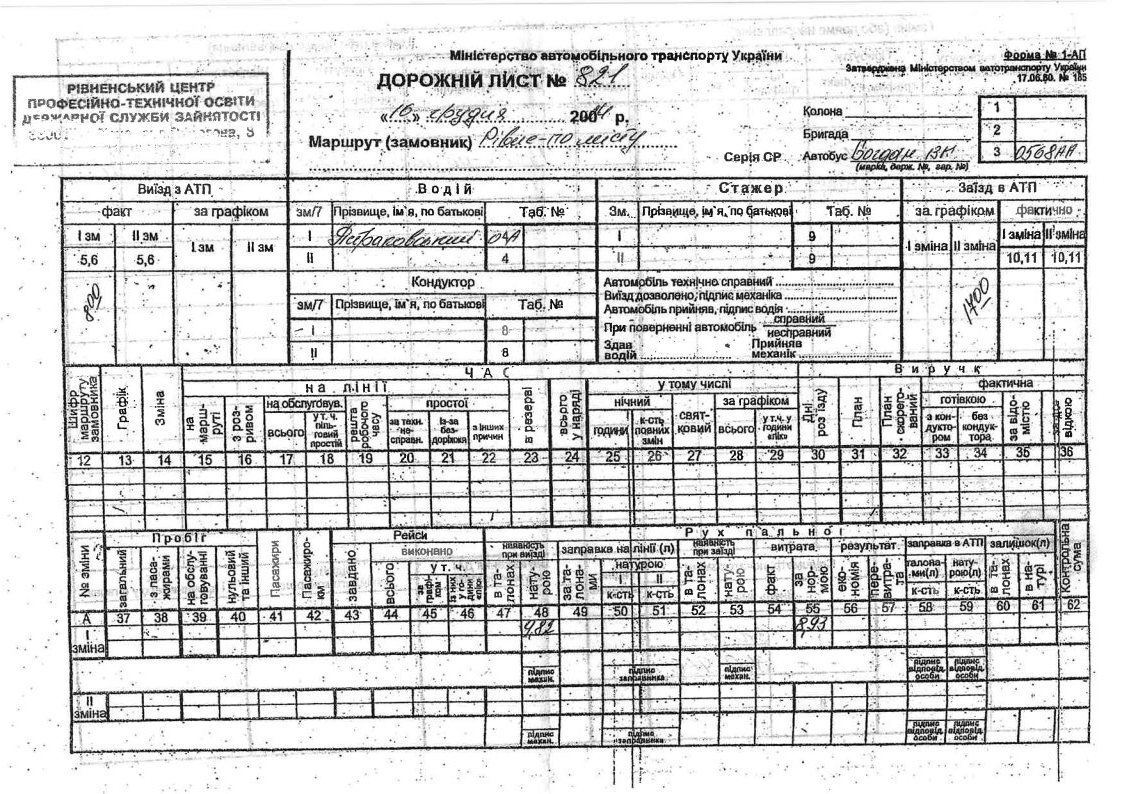 Міністерство автомобільного транспорту України
Форма № 1-АП
ДОРОЖНІЙ ЛИСТ № 821
Затверджена Міністерством автотранспорту України
17.06.80. № 185
РІВНЕНСЬКИЙ ЦЕНТР
ПРОФЕСІЙНО-ТЕХНІЧНОЇ ОСВІТИ
ДЕРЖАВНОЇ СЛУЖБИ ЗАЙНЯТОСТІ
«16» грудня 200 р.
Колона
1
Бригада
2
Маршрут (замовник) Рівне-по місту
Серія СР Автобус Богдан ВК 3 0568АА
(марка, держ. №, гар. №)
Виїзд з АТП Водій Стажер Заїзд в АТП
факт за графіком зм/Т Прізвище, ім`я, по батькові Таб. № Зм. Прізвище, ім`я, по батькові Таб. № за графіком фактично
І зм ІІ зм І зм ІІ зм І І 9 І зміна ІІ зміна І зміна ІІ зміна
5,6 5,6 ІІ 4 ІІ 9 10,11 10,11
Кондуктор
Автомобіль технічно справний
зм/Т Прізвище, ім`я, по батькові Таб. №
Виїзд дозволено, підпис механіка
Автомобіль прийняв, підпис водія
800
1700
І 8
При поверненні автомобіль справний
несправний
ІІ 8
Здав водій Прийняв механік
Ч А С
В и р у ч к
Шифр маршруту замовника Графік Зміна
на лінії
на маршруті з розривом
на обслуговув.
всього у т. ч. пільговий простій
решта робочого часу
простої
за техн. несправн. із-за бездоріжжя з інших причин
в резерві всього у наряді
у тому числі
нічний
години к-сть повних змін
святковий
за графіком
всього у т.ч. у години «пік»
Дні роз`їзду План План скорегований
фактична
готівкою
з кондуктором без кондуктора
за відомістю відкою
12 13 14 15 16 17 18 19 20 21 22 23 24 25 26 27 28 29 30 31 32 33 34 35 36
№ зміни
Пробіг
загальний з пасажирами на обслуговуванні нульовий та інший
Пасажири Пасажиро-км
Рейси
завдано
виконано
всього
у т. ч.
за графіком із них у години «пік»
Рух пальної
наявність при виїзді
в талонах натурою
заправка на лінії (л)
за талонами
натурою
І ІІ
к-сть к-сть
наявність при заїзді
в талонах натурою
витрата
факт за нормою
результат
економія перевитрата
заправка в АТП
талонами(л) натурою(л)
к-сть к-сть
залишок(л)
в талонах в натурі
Контрольна сума
А 37 38 39 40 41 42 43 44 45 46 47 48 49 50 51 52 53 54 55 56 57 58 59 60 61 62
І зміна 9,82 8,93
підпис механ. підпис заправника підпис механ. підпис відповід. особи підпис відповід. особи
ІІ зміна
підпис механ. підпис заправника підпис відповід. особи підпис відповід. особи